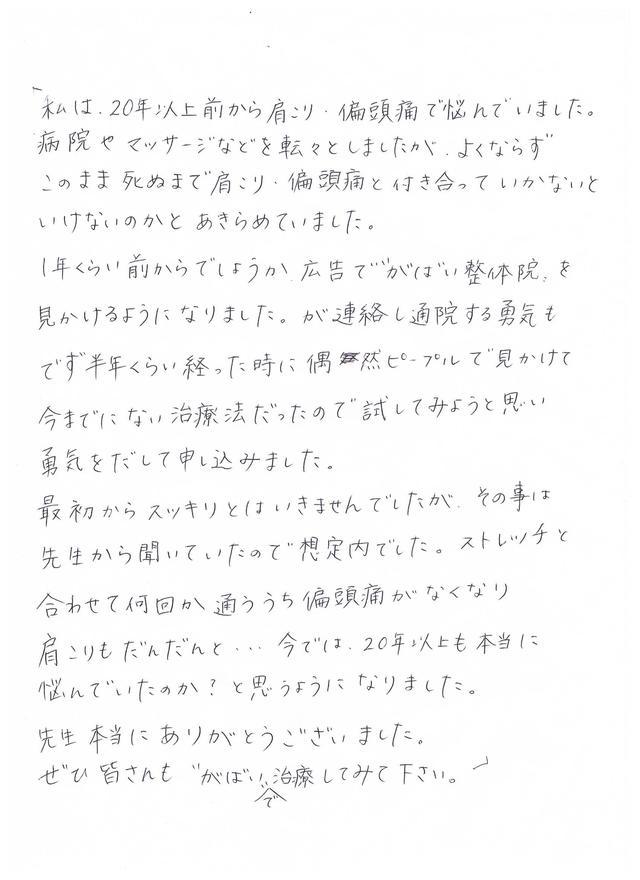 「私は、20年以上前から肩こり・偏頭痛で悩んでいました。
病院やマッサージなどを転々としましたが、よくならず
このまま死ぬまで肩こり・偏頭痛と付き合っていかないと
いけないのかとあきらめていました。
1年くらい前からでしょうか、広告で"がばい整体院"を
見かけるようになりました。が連絡し通院する勇気も
でず半年くらい経った時に偶然ピープルで見かけて
今までにない治療法だったので試してみようと思い
勇気をだして申し込みました。
最初からスッキリとはいきませんでしたが、その事は
先生から聞いていたので想定内でした。ストレッチと
合わせて何回か通ううち偏頭痛がなくなり
肩こりもだんだんと・・・今では、20年以上も本当に
悩んでいたのか?と思うようになりました。
先生本当にありがとうございました。
ぜひ皆さんも"がばい"で治療してみて下さい。」